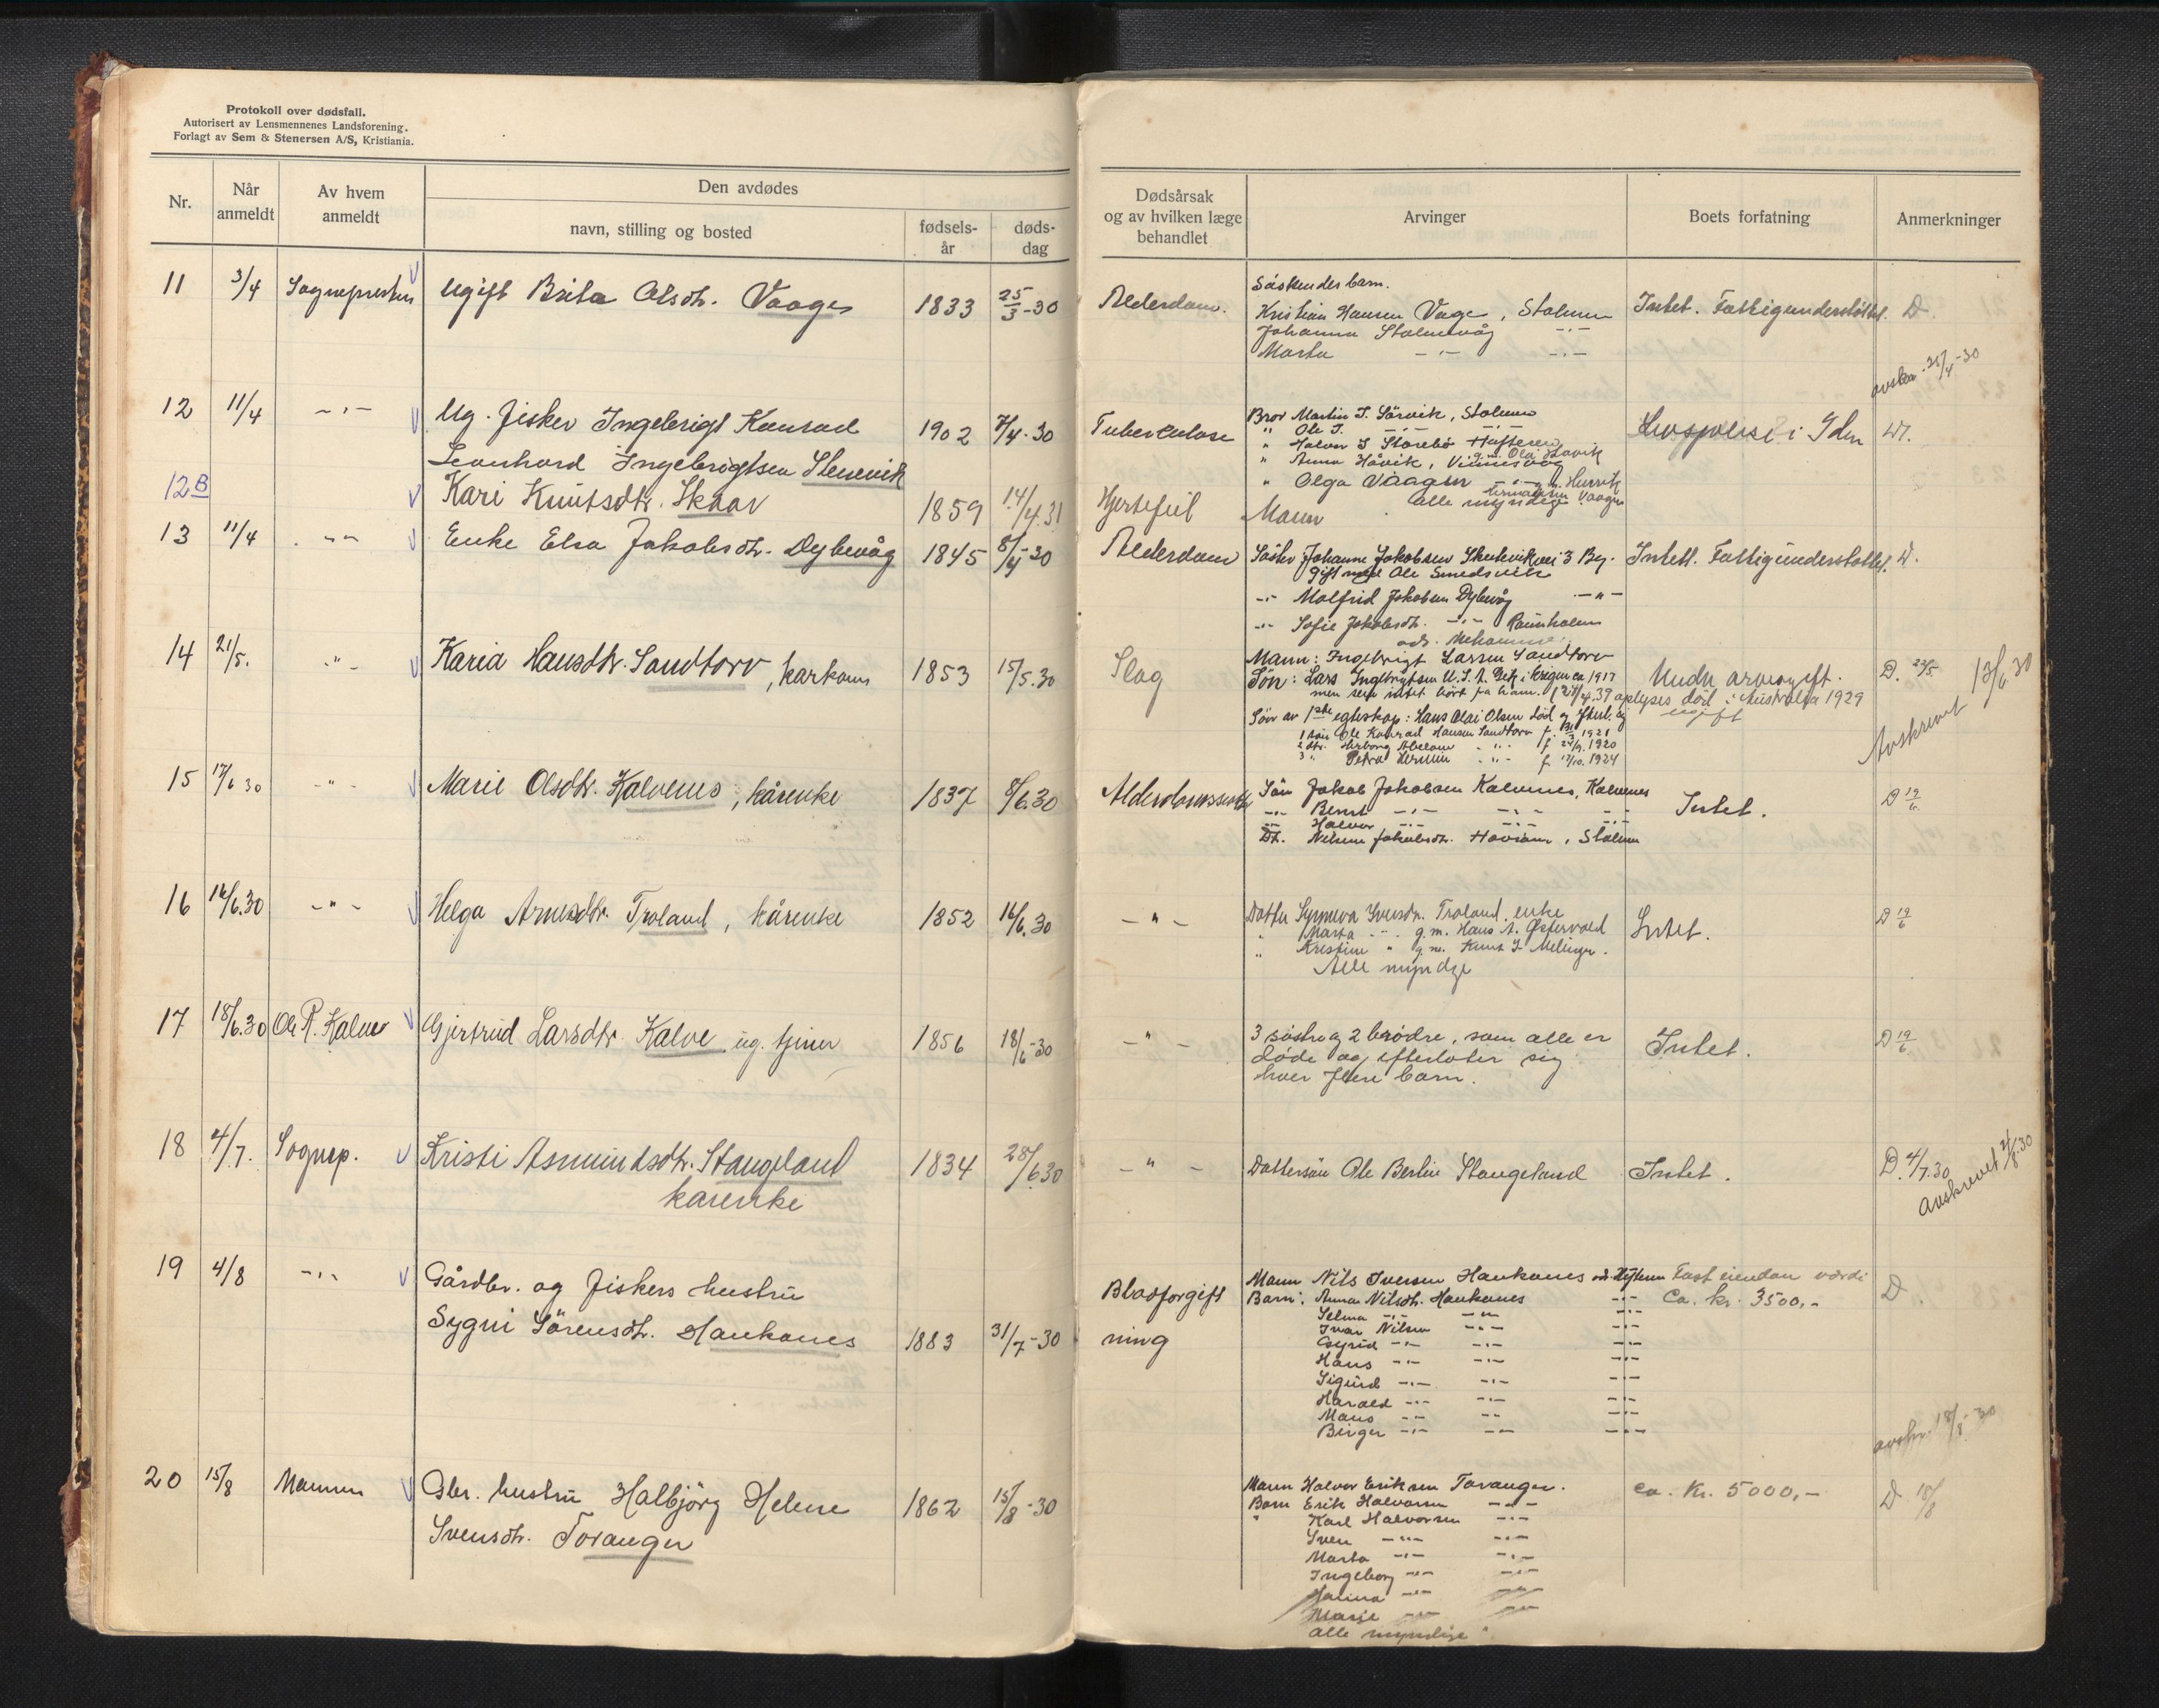 Protokoll over dødsfall.
Autorisert av Lensmennenes Landsforening.
Forlagt av Sem & Stenersen A/S, Kristiania.
Nr.
Når anmeldt
Av hvem anmeldt
Den avdødes
navn, stilling og bosted
fødsels-år
døds-dag
Dødsårsak og av hvilken læge behandlet
Arvinger
Boets forfatning
Anmerkninger
11 3/4 Sognepresten Ugift Brita Olsdtr. Vaage 1833 25/3-30 Alderdom.
Søskendebarn.
Kristian Hansen Vage, Stolmen
Johanna Stolmevåg -"-
Marta -"- -"-
Intet. Fattigunderstøttet. D.
avskr. 25/4-30
12 11/4 -"- Ug. fisker Ingebrigt Konrad
Leonhard Ingebrigtsen Stenevik
1902 7/4-30 Tuberculose
Bror Martin I. Sørvik, Stolmen
" Ole I. -"- -"-
" Halvor I Storebø Hufteren
" Anna Håvik, Vinnesvåg g.m. Ola Håvik
" Olga Vaagen -"- g.m. Henrik
Vaagen
Alle myndige
i Gden
12B Kari Knutsdtr. Skaar 1859 14/4.31 Hjertefeil Mann
13 11/4 -"- Enke Elsa Jakobsdtr. Dybevåg 1845 8/4-30 Alderdom
Søster Johanne Jakobsen Skutevikvei 3 Bg.
gift med Ole Smedsvik
-"- Molfrid Jakobsen Dybevåg -"-
-"- Sofie Jakobsdtr. -"-
Intet. Fattigunderstøttet. D.
14 21/5. -"- Karia Hansdtr. Sandtorv, kårkone 1853 15/5.30 Slag
Mann: Ingebrigt Larsen Sandtorv
Søn: Lars Ingebrigtsen U.S.A. Deltok i krigen ca 1917
men sen intet hørt fra ham. (27/4.39 oplyses død i Australia 1929
ugift
Søn av 1ste egteskap: Hans Olai Olsen død og efterl. sig
1 søn Ole Konrad Hansen Sandtorv f. 1921
2 dtr. Herborg -"- f 24/9.1920
3 " Petra -"- f. 17/10.1924
Undr arveavgift.
D. 22/5
Avskrevet 13/6 30
15 17/6 30 -"- Marie Olsdtr. Kalvenes, kårenke 1837 8/6.30 Alderdomssvak
Søn Jakob Jakobsen Kalvenes, Kalvenes
-"- Bernt -"- -"- -"-
-"- Halvor -"- -"- -"-
Dt. Nilsine Jakobsdtr. Hovland, Stolmen
Intet.
D 19/6
16 16/6.30 -"- Helga Arnesdtr. Troland, kårenke 1852 16/6.30 -"-
Datter Synneva Svensdtr. Troland, enke
" Marta -"- g.m. Hans A. Østervold
" Kristine " g.m. Knut I. Mellingen.
Alle myndge
Intet.
D 19/6
17 18/6.30 Ole R. Kalve Gjertrud Larsdtr. Kalve, ug. tjener 1856 18/6-30 -"-
3 søstre og 2 brødre, som alle er
døde og efterlater sig
hver flere barn.
Intet.
D 19/6
18 4/7. Sognep. Kristi Asmundsdtr. Stangeland
kårenke
1834 28/6 30 -"- Dattersøn Ole Bertin Stangeland Intet.
D. 4/7.30
Avskrevet 2/8.30
19 4/8 -"- Gårdbr. og fiskers hustru
Sygni Sørensdtr. Haukanes 1883 31/7-30
Blodforgift
ning
Mann Nils Iversen Haukanes Fast eiendom værdi
Barn: Anna Nilsdtr. Haukanes -"- Ca. kr. 3500,-
Selma -"- -"- -"-
Ivar Nilsen -"- -"-
Gyrid -"- -"- -"-
Hans -"- -"- -"-
Sigurd -"- -"- -"-
Harald -"- -"- -"-
Mans -"- -"- -"-
Birger -"- -"- -"-
D.
avskr. 18/8-30
20 15/8 Mannen Gbr. hustru Halbjørg Helene
Svensdtr. Toranger
1862 15/8-30
Mann Halvor Eriksen Toranger.
Barn Erik Halvorsen -"-
" Karl Halvorsen -"-
Sven -"- -"-
Marta -"- -"-
Ingeborg -"- -"-
Halina -"- -"-
Marie -"- -"-
Alle myndige
ca. Kr. 5000,-
D. 18/8